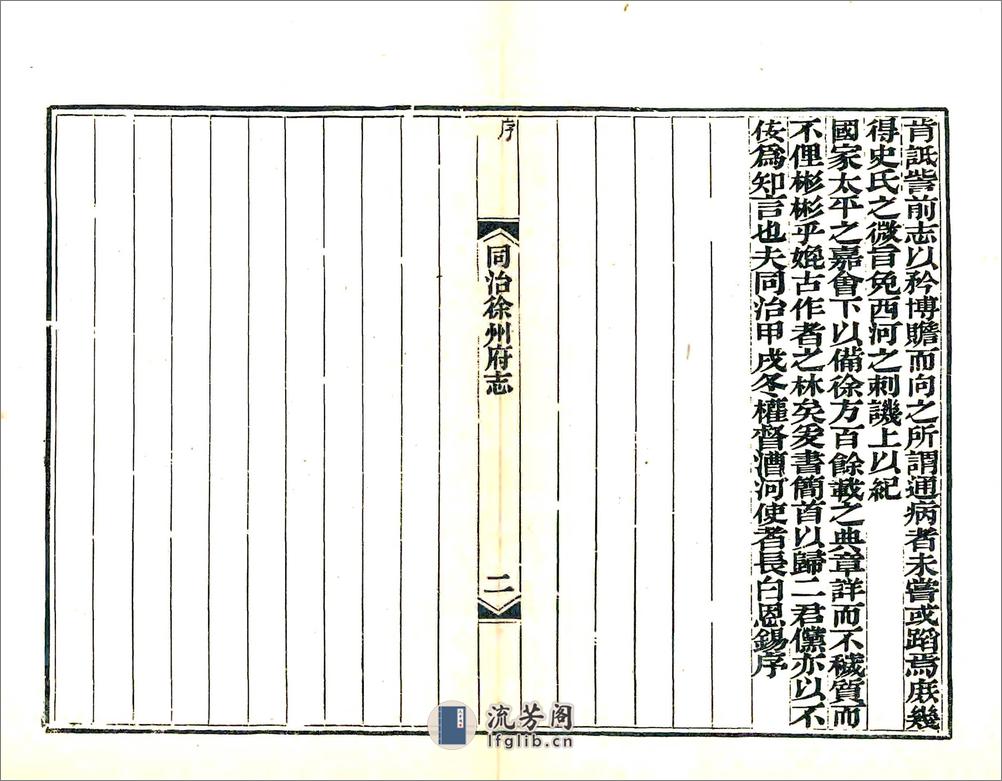 肯詆訾前志以矜博贍而向之所謂通病者未嘗或蹈焉庶幾
得史氏之微旨免西河之刺譏上以紀
國家太平之嘉會下以備徐方百餘載之典章詳而不穢質而
不俚彬彬乎娩古作者之林矣爰書簡首以歸二君儻亦以不
佞爲知言也夫同治甲戌冬權督漕河使者長白恩錫序
序
同治徐州府志
二
流芳阁
lfglib.cn